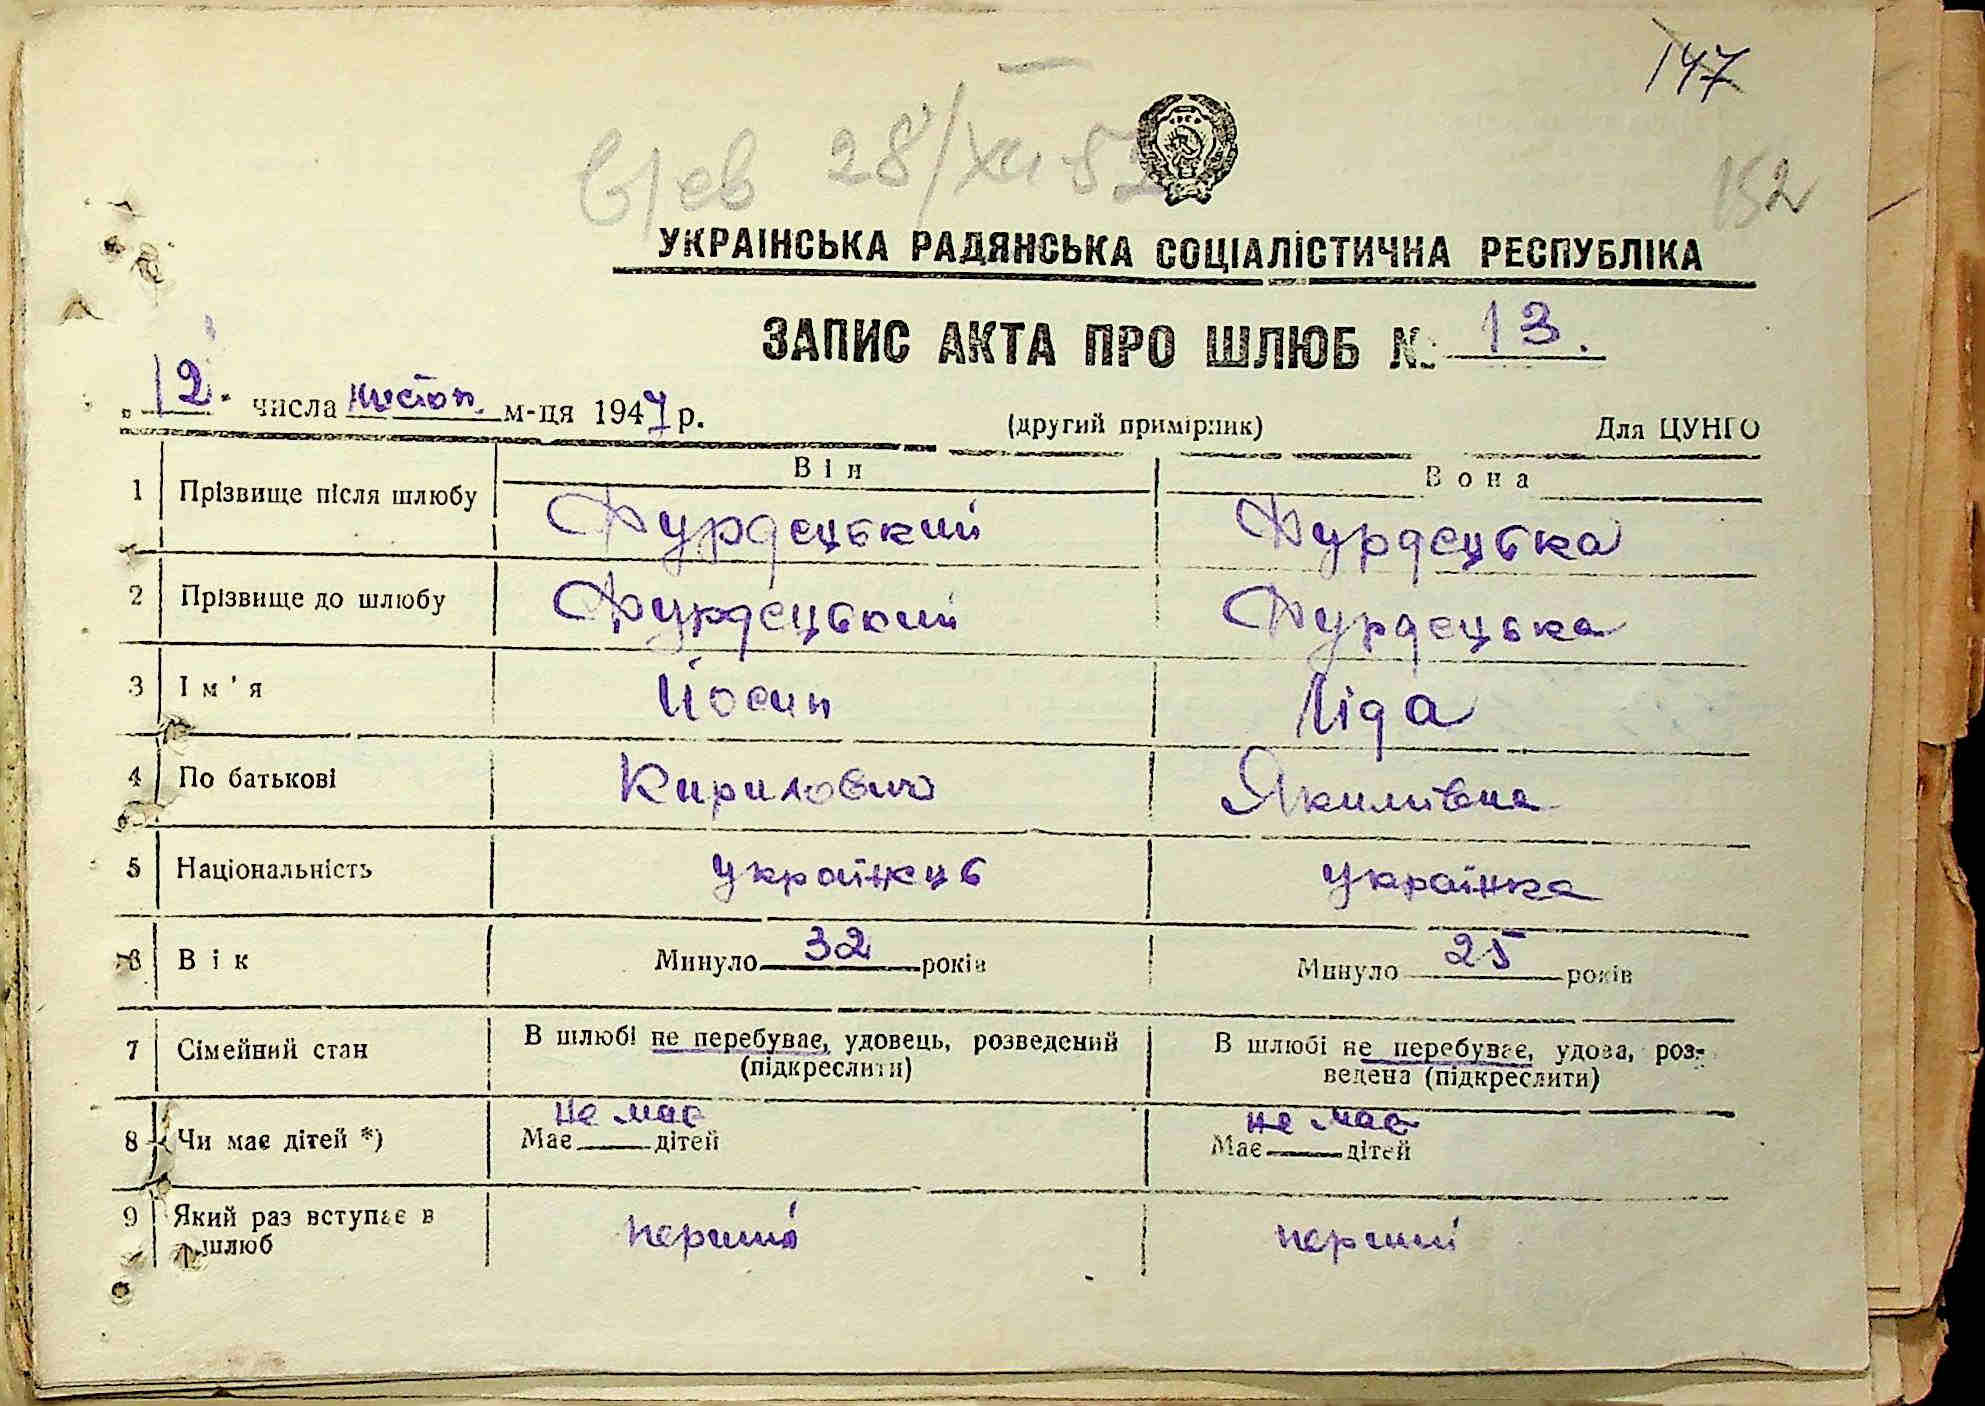 147
28/XII-52
152
УКРАІНСЬКА РАДЯНСЬКА СОЦІАЛІСТИЧНА РЕСПУБЛІКА
ЗАПИС АКТА ПРО ШЛЮБ № 13.
„12." числа листоп. м-ця 1947 р.
(другий примірник)
Для ЦУНГО
Він
Вона
1 Прізвище після шлюбу Дурдецький Дурдецька
2 Прізвище до шлюбу Дурдецький Дурдецька
3 Ім'я Йосип Ліда
4 По батькові Кирилович Якимівна
5 Національність українець українка
6 Вік Минуло 32 років Минуло 25 років
7 Сімейний стан В шлюбі не перебуває, удовець, розведений (підкреслити) В шлюбі не перебуває, удова, роз-
ведена (підкреслити)
8 Чи має дітей *) Має не має дітей Має не має дітей
9 Який раз вступає в шлюб перший перший